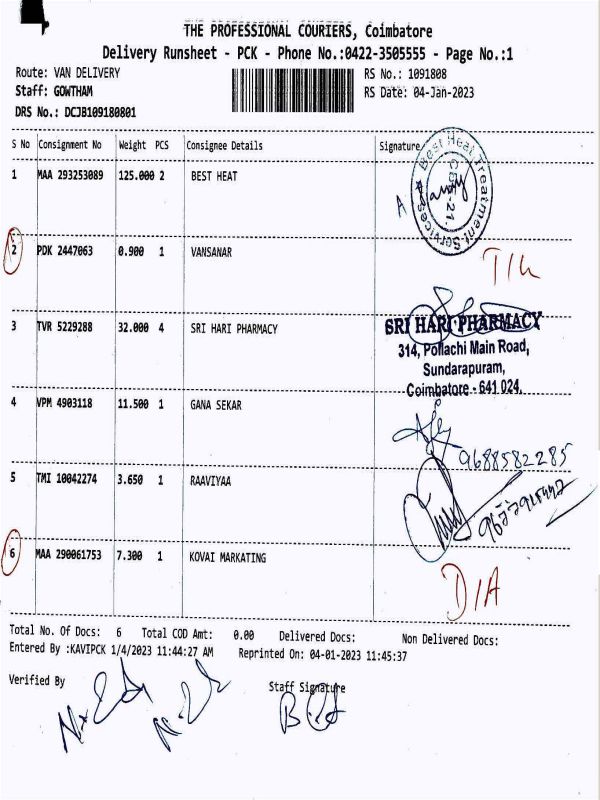 THE PROFESSIONAL COURIERS, Coimbatore
Delivery Runsheet - PCK - Phone No.:0422-3505555 - Page No.:1
Route: VAN DELIVERY RS No.: 1091808
Staff: GOWTHAM RS Date: 04-Jan-2023
DRS No.: DCJB109180801
S No Consignment No Weight PCS Consignee Details Signature
1 MAA 293253089 125.000 2 BEST HEAT
Best Heat Treatment Services
CBE-21.
2 PDK 2447063 0.900 1 VANSANAR
3 TVR 5229288 32.000 4 SRI HARI PHARMACY
SRI HARI PHARMACY
314, Pollachi Main Road,
Sundarapuram,
Coimbatore - 641 024.
4 VPM 4903118 11.500 1 GANA SEKAR
9688582285
5 TMI 10042274 3.650 1 RAAVIYAA
6 MAA 290061753 7.300 1 KOVAI MARKATING
D/A
Total No. Of Docs: 6 Total COD Amt: 0.00 Delivered Docs: Non Delivered Docs:
Entered By :KAVIPCK 1/4/2023 11:44:27 AM Reprinted On: 04-01-2023 11:45:37
Verified By Staff Signature